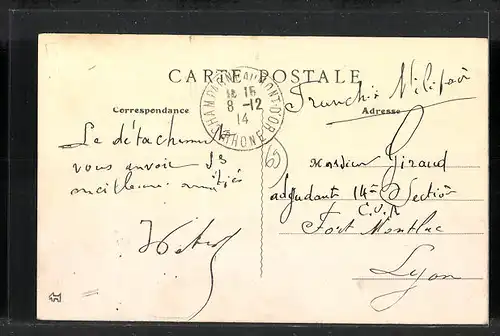 CARTE POSTALE
Correspondance
Adresse
CHAMPAGNE AU MONT-D'OR
15
8-12
14
RHONE
Franchise Militaire
Le détachement
vous envoie ses
meilleures amitiés
Monsieur Giraud
adjudant 14e Section
C.V.A
Fort Montluc
Lyon